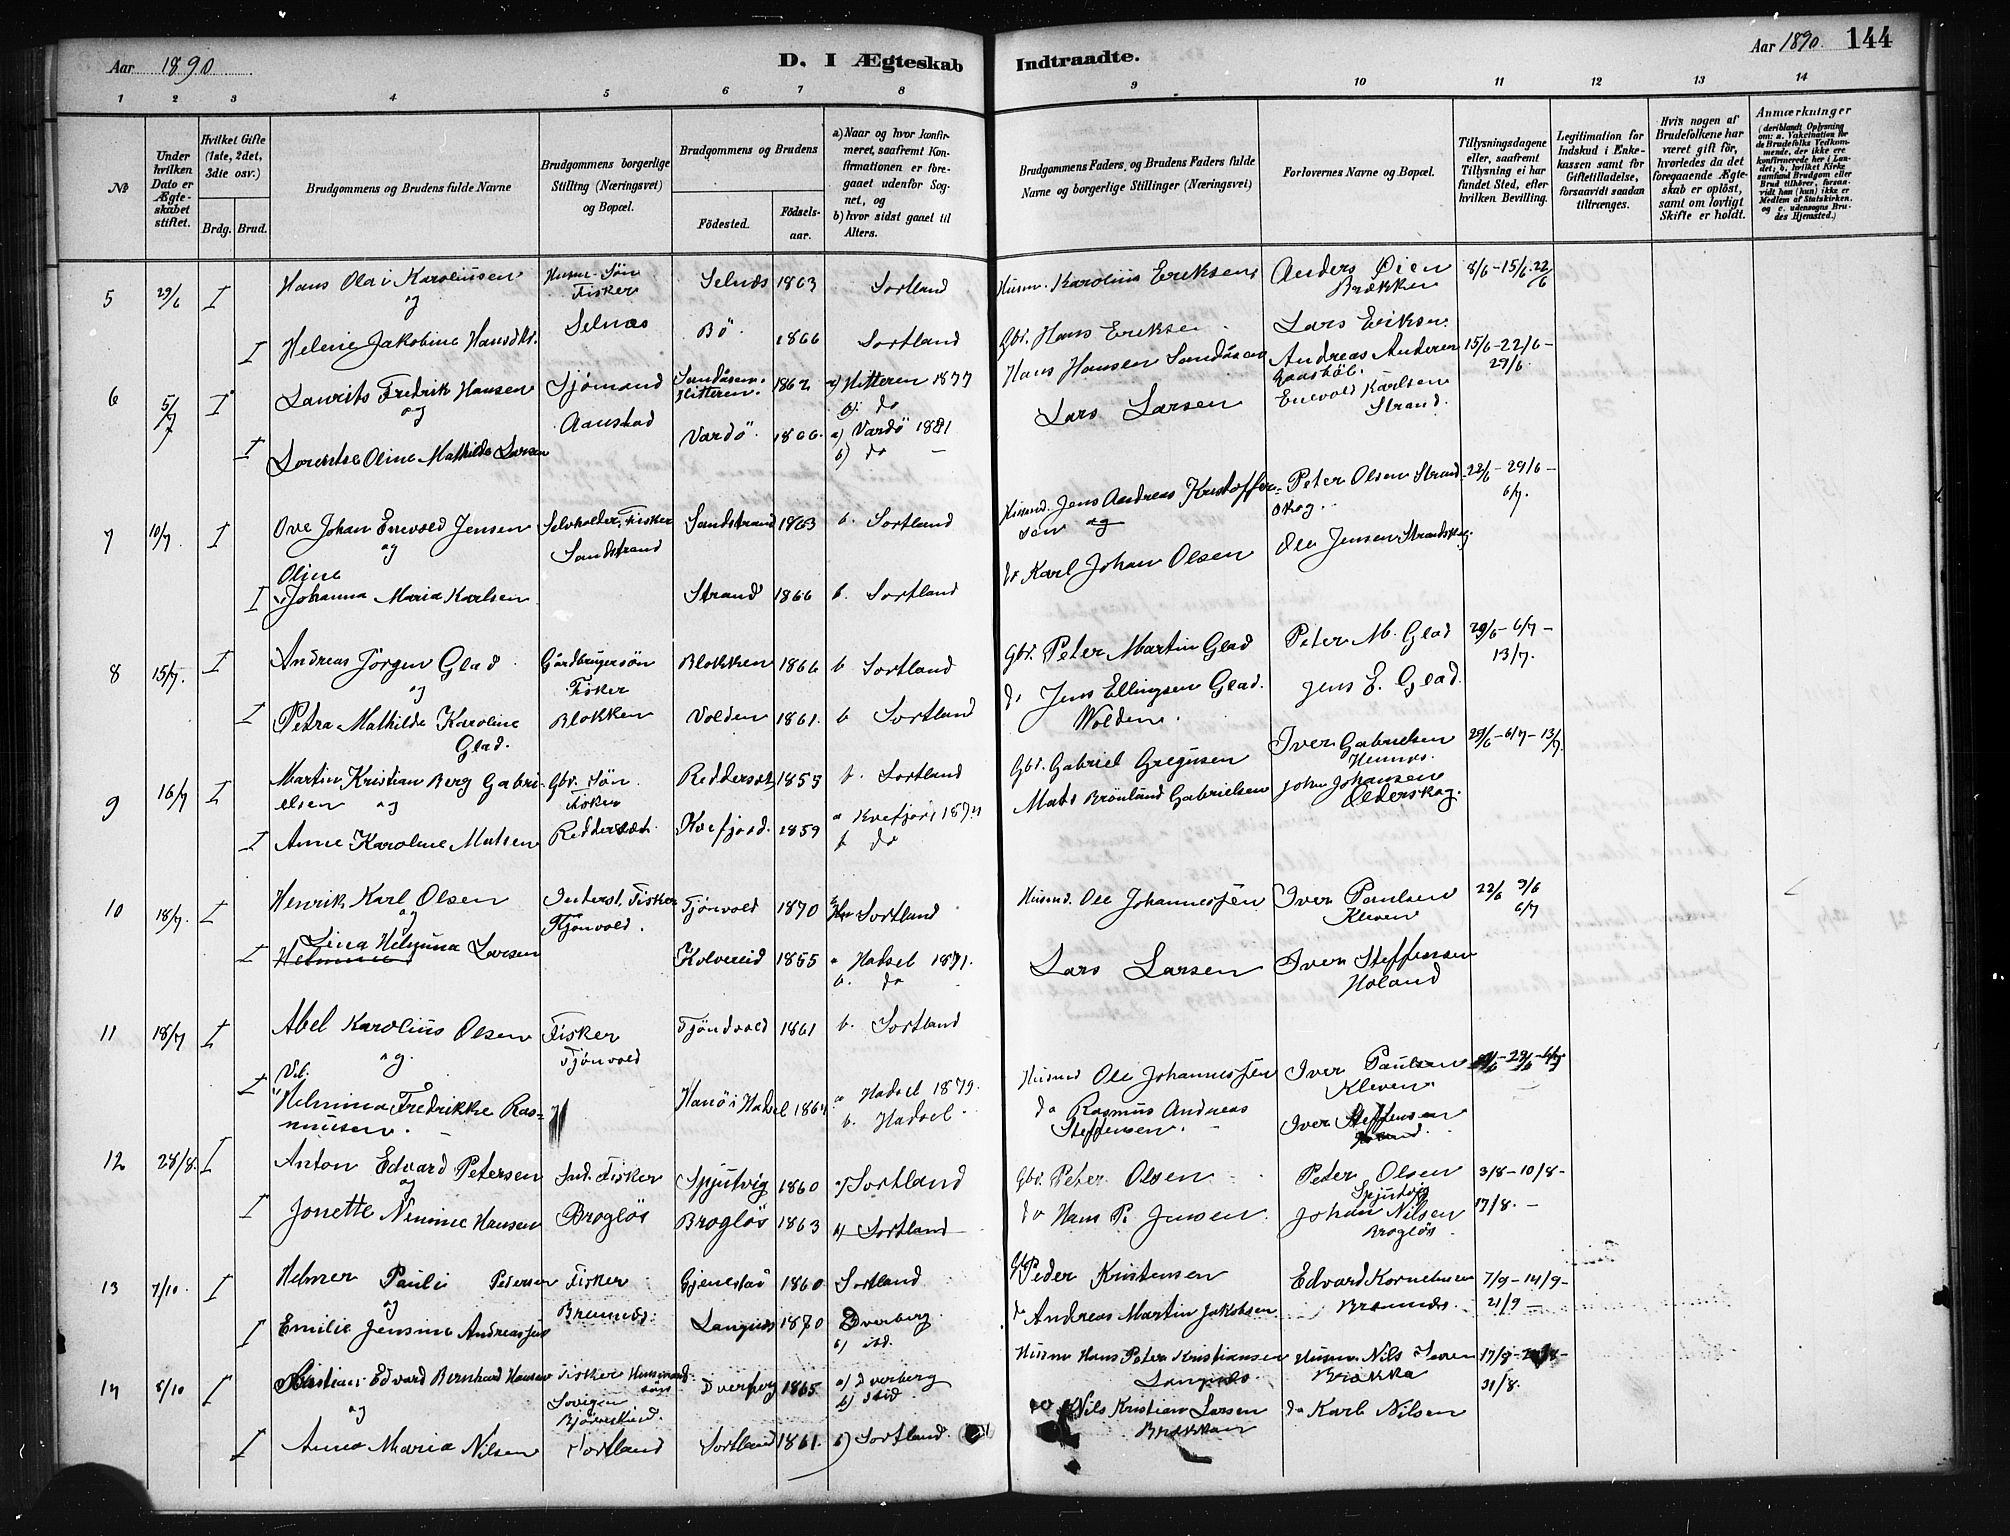 Aar 1890
D. I Ægteskab Indtraadte.
Aar 1890. 144
1 2 3 4 5 6 7 8 9 10 11 12 13 14
№
Under hvilken Dato er Ægteskabet stiftet.
Hvilket Gifte (1ste, 2det, 3die osv.)
Brdg. Brud.
Brudgommens og Brudens fulde Navne
Brudgommens borgerlige Stilling (Næringsvei) og Bopæl.
Brudgommens og Brudens
Födested. Födselsaar.
a) Naar og hvor konfirmeret, saafremt Konfirmationen er foregaaet udenfor Sognet, og
b) hvor sidst gaaet til Alters.
Brudgommens Faders, og Brudens Faders fulde Navne og borgerlige Stillinger (Næringsvei)
Forlovernes Navne og Bopæl.
Tillysningsdagene eller, saafremt Tillysning ei har fundet Sted, efter hvilken Bevilling.
Legitimation for Indskud i Enkekassen samt for Giftetilladelse, forsaavidt saadan tiltrænges.
Hvis nogen af Brudefolkene har været gift för, hvorledes da det foregaaende Ægteskab er oplöst, samt om lovligt Skifte er holdt.
Anmærkninger
(deriblandt Oplysning om: a. Vakcination for de Brudefolks Vedkommende, der ikke ere konfirmerede her i Landet; b. hvilket Kirkesamfund Brudgom eller Brud tilhörer, forsaavidt han (hun) ikke er Medlem af Statskirken. og c. udensogns Brudes Hjemsted.)
5 29/6 I Hans Olai Karoliusen Husm. Sön Fisker Selnæs 1863 Sortland Husm. Karolius Eriksen Anders Öien Brækken 8/6 - 15/6 22/6
og Selnæs
I Helene Jakobine Hansdtr. Bö 1866 Sortland Gbr. Hans Eriksen Lars Eriksen
6 5/7 I Laurits Fredrik Hansen Sjömand Sandåsen Hitteren 1862 a) Hitteren 1877 b. do Hans Hansen Sandåsen Andreas Andersen 15/6 - 22/6 - 29/6
og Aanstad
I Lorentse Oline Mathilde Larsen Vardö 1866. a) Vardö 1881 b) do Lars Larsen Enevold Karlsen Strand.
7 10/7 I Ove Johan Enevold Jensen Selvholder, Fisker Sandstrand 1863 b. Sortland Husmd. Jens Andreas Kristoffersen Peter Olsen Strand Skog. 22/6 - 29/6 - 6/7.
og Sandstrand
Oline
I Johanna Maria Karlsen Strand 1866 b. Sortland do Karl Johan Olsen Ole Jensen Strandskog.
8 15/7. I Andreas Jörgen Glad Gårdbrugersön Fisker Blokken 1866 b Sortland Gbr. Peter Martin Glad Peter M. Glad 29/6 - 6/7 - 13/7.
og
I Petra Mathilde Karoline Glad. Blokken Volden 1861. b Sortland do Jens Ellingsen Glad. Wolden. Jens E. Glad.
9 16/7 I Martin Kristian Berg Gabrielsen Gbr. Sön Fisker Reddersæt 1855 b. Sortland Gbr. Gabriel Gregusen Iver Gabrielsen Hennes. 29/6 - 6/7 - 13/7
og
I Anne Karoline Matsen Reddersæt. Kvefjord. 1859 a Kvefjord 1874 b do Mats Brönlund Gabrielsen John Johansen Olderskog.
10 18/7. I Henrik Karl Olsen Inderst. Fisker Fjönvold. Tjönvold 1870 Sortland Husmd. Ole Johannessen Iver Paulsen Kleven 22/6 9/6 6/7
og
I Lina Helmina Larsen Kolvereid 1855 a Hadsel 1871. b. do Lars Larsen Iver Steffensen Holand
11 18/7 I Abel Karolius Olsen Fisker Tjönvold Tjöndvold 1861 b. Sortland Husmd Ole Johannessen Iver Paulsen Kleven
og.
I Helmina Fredrikke Rasmussen. Hanöi Hadsel 1864 a Hadsel 1879. b. Hadsel do Rasmus Andreas Steffensen Iver Steffensen
12 28/8. I Anton Edvard Petersen Ind. Fisker Spjutvig 1860 Sortland Gbr. Peter Olsen Peter Olsen Spjutvig 3/8 - 10/8 -
og
I Jonette Nimine Hansen Broglös Broglös 1863 b) Sortland do Hans P. Jensen Johan Nilsen Broglös. 17/8. -
13 7/10. I Helmer Pauli Pedersen Fisker Gjenestad 1860 Sortland Gbr Peder Kristensen Edvard Kornelius 7/9 - 14/9 -
og Bremnæs.
I Emilie Jensine Andreassen Langnæs 1870 Dverberg b) ibd. do Andreas Martin Jakobsen Bremnes. 21/9 -
14 8/10 I Kristian Edvard Bernhard Hansen Fisker Husmandssön Dverberg 1865 a) Dverberg b) ibid Husm Hans Peter Kristiansen Langnæs Husm. Nils Iversen Brækka 17/8 - - 31/8.
og
I Anna Maria Nilsen Sortland Sortland 1861. b) Sortland. Nils Kristian Larsen Brækkan do Karl Nilsen